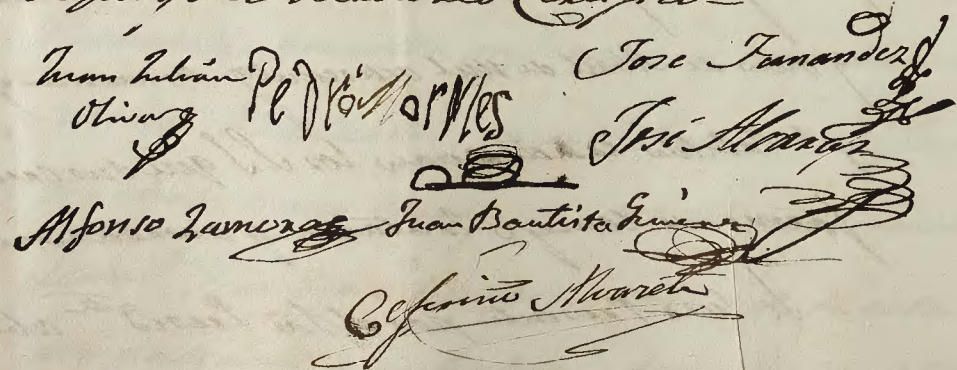 Juan Julián
Olivar
Pedro Morales
Jose Fernandez
José Alvarez
Alfonso Zamora
Juan Bautista Gimenez
Ceferino Alvarez